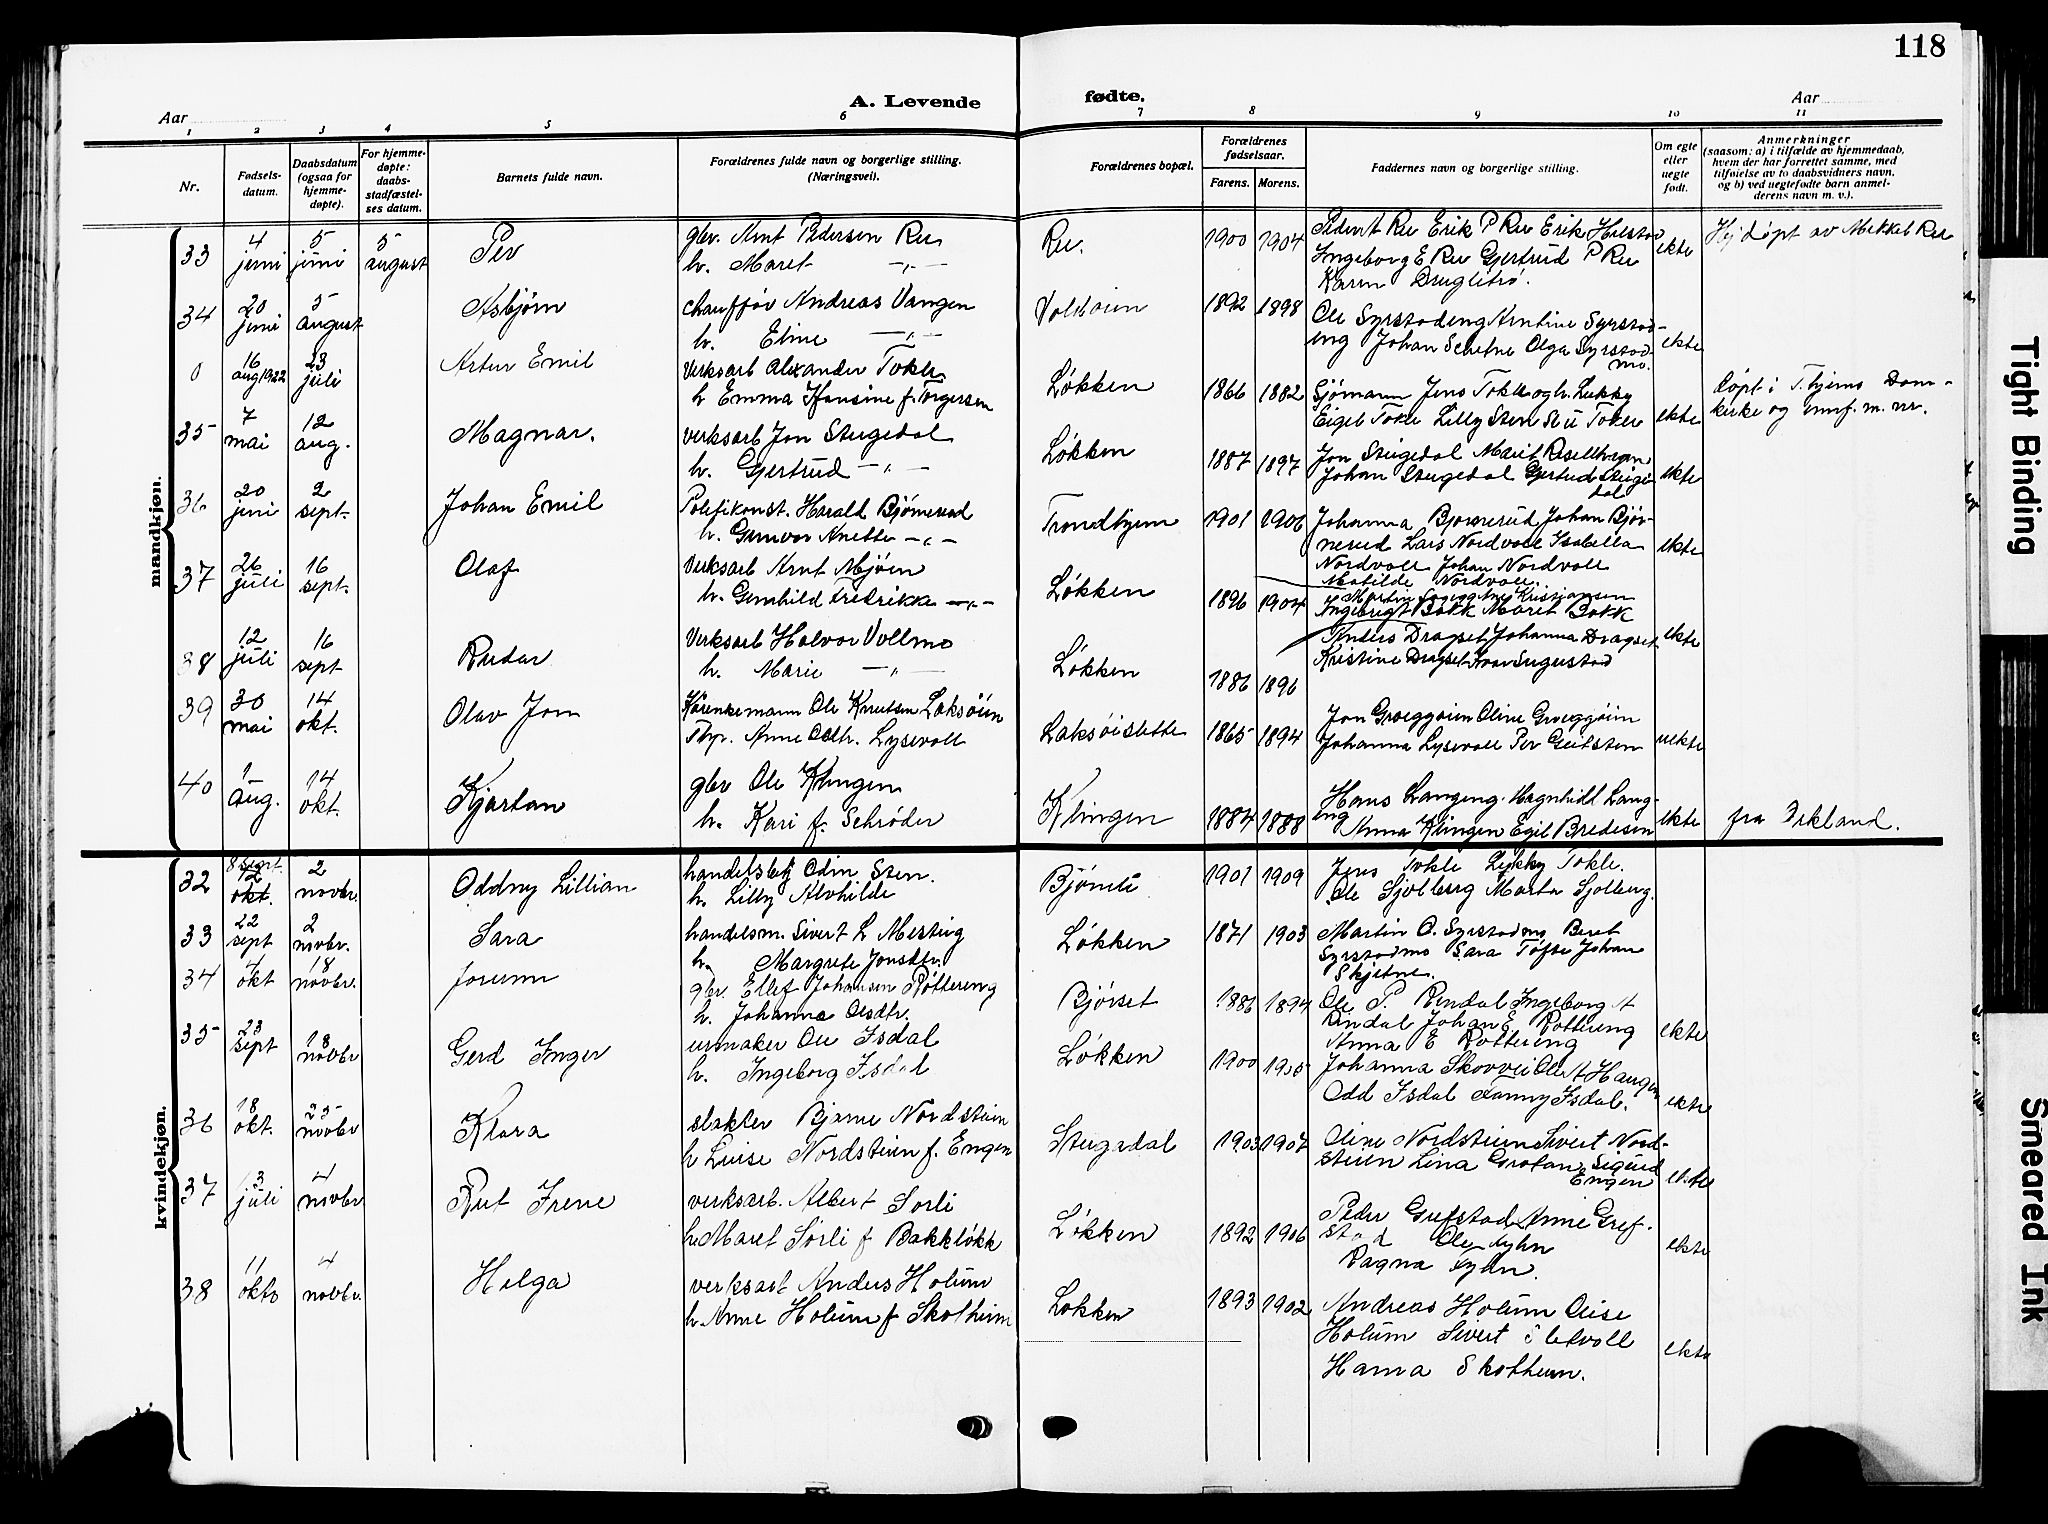 118
A. Levende fødte.
Aar
Aar
1 2 3 4 5 6 7 8 9 10 11
Nr.
Fødsels-
datum.
Daabsdatum
(ogsaa for
hjemme-
døpte).
For hjemme-
døpte:
daabs-
stadfæstel-
ses datum.
Barnets fulde navn.
Forældrenes fulde navn og borgerlige stilling.
(Næringsvei).
Forældrenes bopæl.
Forældrenes
fødselsaar.
Farens. Morens.
Faddernes navn og borgerlige stilling.
Om egte
eller
uegte
født.
Anmerkninger
(saasom: a) i tilfælde av hjemmedaab,
hvem der har forrettet samme, med
tilføielse av to daabsvidners navn,
og b) ved uegtefødte barn anmel-
derens navn m. v.).
mandkjøn.
33 4 juni 5 juni 5 august Per
gbr. Arnt Pedersen Ru
h. Maret -"-
Ru. 1900 1904
Peder A Ru Erik P Ru Erik
Ingeborg E Ru Gjertrud P Ru
Karen Druglitrø.
ekte
Hj døpt av Mekkel Ru
34 20 juni 5 august Asbjørn
chauffør Andreas Vangen
h. Eline -"-
1892 1898
Ole Syrstadeng Arntine Syrstad-
eng Johan Schetne Olga Syrstad-
mo.
ekte
0 16 aug 1922 23 juli Artur Emil
verksarb Alexander Tokle
h Emma Hansine f. Torgersen
Løkken 1866 1882
Sjømann Jens Tokle og h. Lukky
Eigel Tokle Lilly Sten Tokle
ekte
døpt i T.hjems Dom-
kirke og innf. m. nr.
35 7 mai 12 aug. Magnar.
verksarb Jon Stugedal
h. Gjertrud -"-
Løkken 1887 1897
Jon Stugedal Marit
Johan Stugedal Gjertrud Stuge
dal
ekte
36 20 juni 2 sept. Johan Emil
Politikonst. Harald Bjørnerud
h. Gunvor Anette -"-
Trondhjem 1901 1906
Johanna Bjørnerud Johan Bjør-
nerud Lars Nordvoll Isabella
Nordvoll Johan Nordvoll
Matilde Nordvoll.
ekte
37 26 juli 16 sept. Olaf
Verksarb Arnt Mjøen
h. Gunhild Fredrikke -"-
Løkken 1896 1904
Martin Kristiansen
Ingebrigt Bakk Maret Bakk
ekte
38 12 juli 16 sept Reidar
Verksarb Halvor Vollmo
h. Marie -"-
Løkken 1886 1896
Anders Dragset Johanna Dragset
Kristine Dragset
39 30 mai 14 okt. Olav Jon
Ole Knutsen Laksøien
Anne Lysevoll
Laksøisletta 1865 1894
Jon Groeggøien Oline Groeggøien
Johanna Lysevoll Per
uekte
40 1 aug. 14 okt. Kjartan
gbr Ole Klingen
h. Kari f. Schrøder
Klingen 1884 1888
Hans Langeng. Magnhild Lang-
eng Anna Klingen Egil Bredesen
ekte
fra Orkland.
kvindekjøn.
32 8 sept. 12 okt. 2 novbr. Oddny Lillian
handelsbetj Odin Sten.
h. Lilly Alvhilde
Bjørnli 1901 1909
Jens Tokle Lykky Tokle.
Ole Sjølberg Marta Sjølberg.
33 22 sept 2 novbr. Sara
handelsm. Sivert L Mosting
h. Margrete Jonsdtr.
Løkken 1871 1903
Martin O. Syrstadmo Beret
Syrstadmo Sara Tofte Johan
Skjetne.
34 4 okt 18 novbr. Jorunn
gbr. Ellef Johansen Røttereng
h. Johanna Olsdtr.
Bjørset 1886 1894
Ole P. Rindal Ingeborg A
Rindal Johan E Røttereng
Anna E Røttereng
ekte
35 23 sept 18 novbr Gerd Inger
urmaker Ole Isdal
h. Ingeborg Isdal
Løkken 1900 1905
Johanna Skovvei Ole A Haugen
Odd Isdal Fanny Isdal.
ekte
36 18 okt. 25 novbr Klara
slakter Bjarne Nordsteien
h Luise Nordsteien f. Engen
Stugudal 1903 1907
Oline Nordsteien Sivert Nord-
steien Lina Grotan Sigurd
Engen
ekte
37 13 juli 4 novbr Rut Irene
verksarb. Albert Sørli
h. Maret Sørli f Bakkløkk
Løkken 1892 1906
Peder Grefstad Anne Gref-
stad Ole
Ragna
ekte
38 11 okto 4 novbr. Helga
verksarb Anders Holum
h. Anne Holum f Skotheim
Løkken 1893 1902
Andreas Holum Olise
Holum Sivert
Hanna Skotheim.
ekte
Tight Binding
Smeared Ink